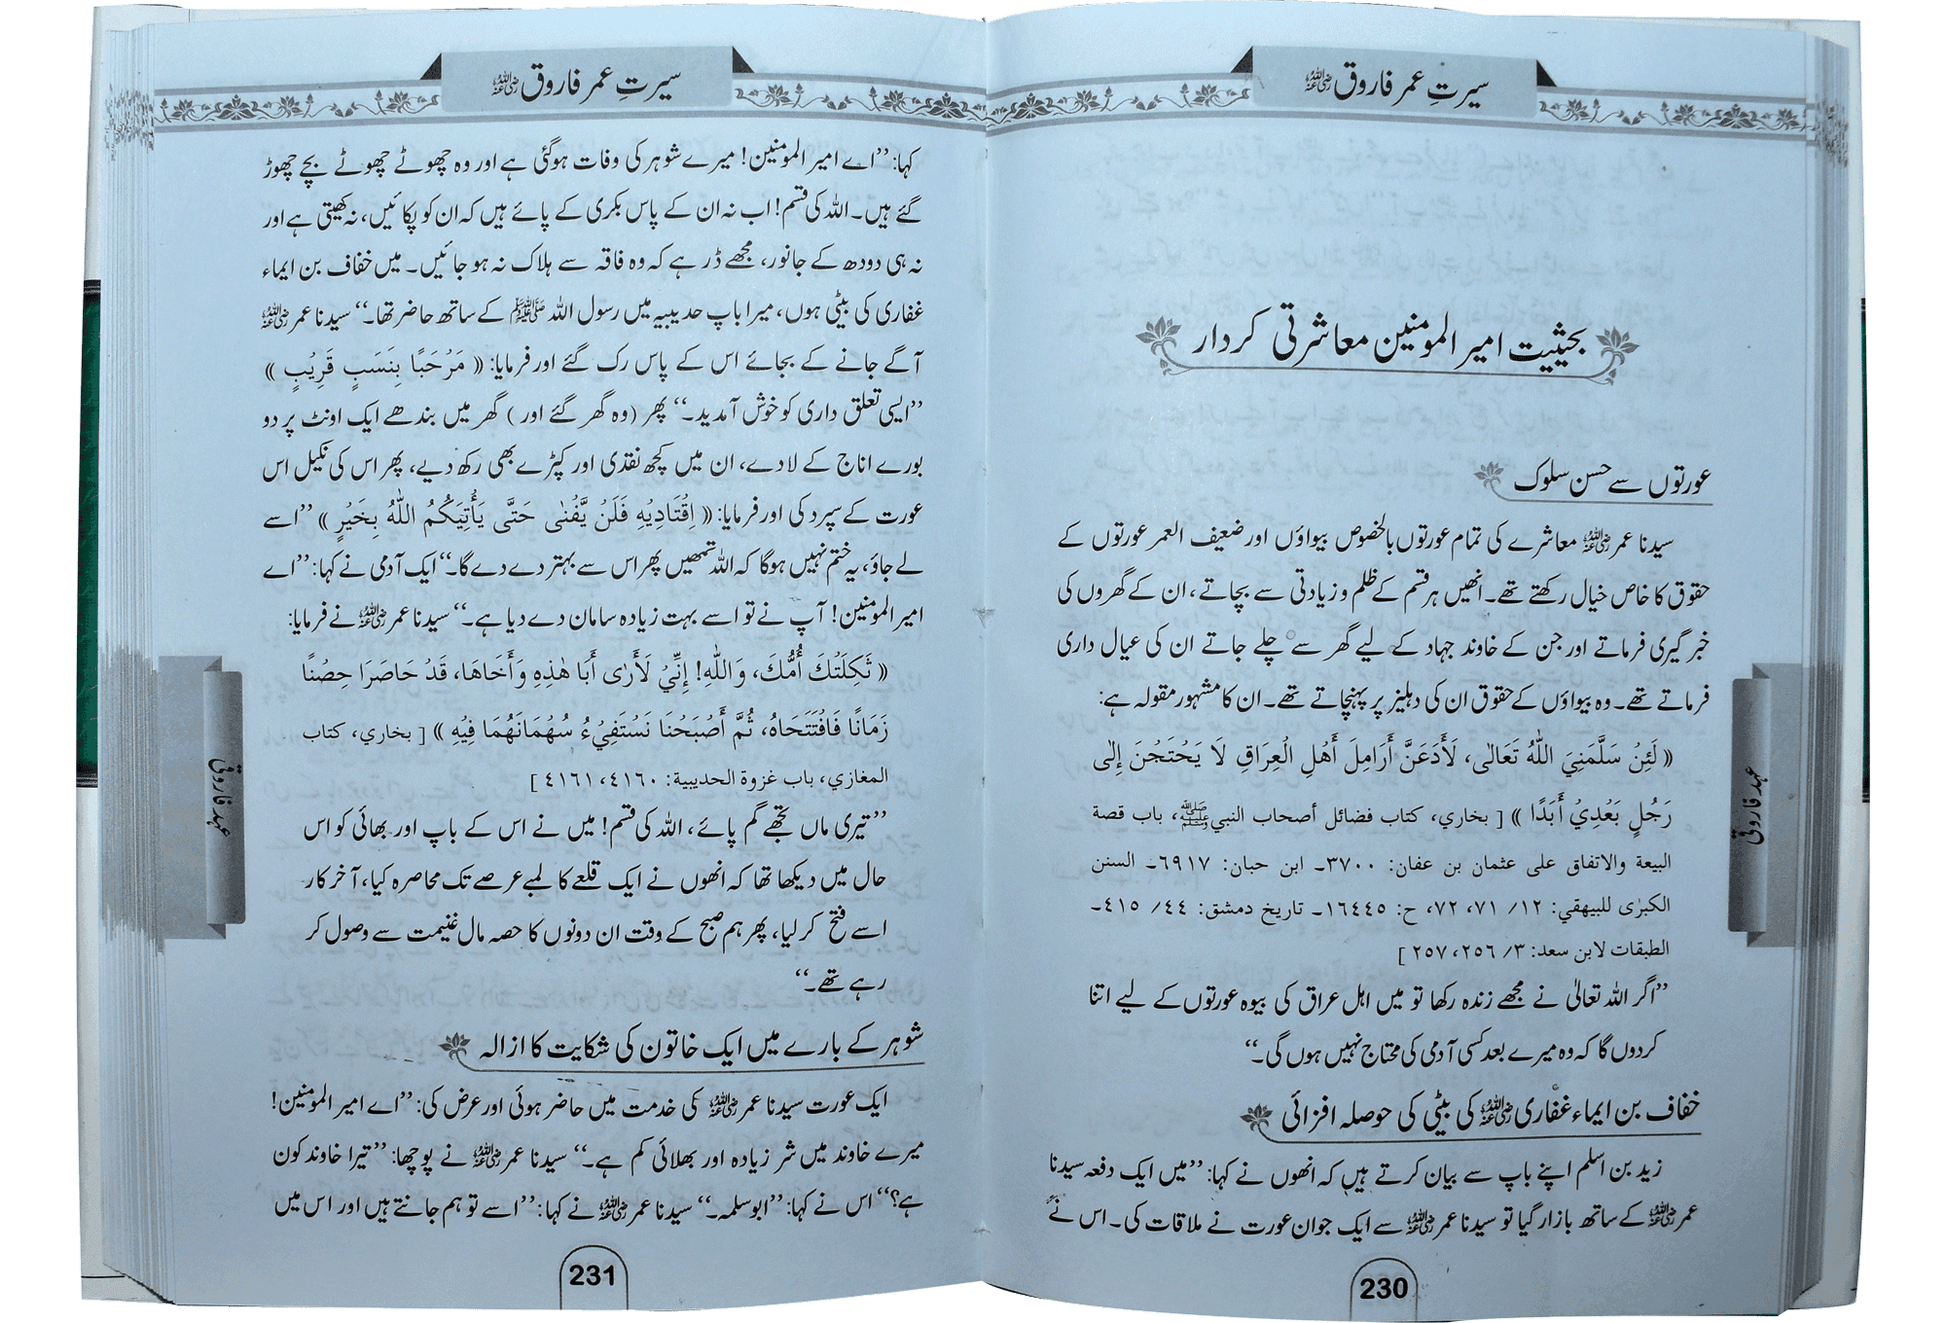 سیرتِ عمر فاروق ﷛
بحیثیت امیر المومنین معاشرتی کردار
عورتوں سے حسن سلوک
سیدنا عمر﷛ معاشرے کی تمام عورتوں بالخصوص بیواؤں اور ضعیف العمر عورتوں کے
حقوق کا خاص خیال رکھتے تھے۔ انھیں ہر قسم کے ظلم و زیادتی سے بچاتے، ان کے گھروں کی
خبر گیری فرماتے اور جن کے خاوند جہاد کے لیے گھر سے چلے جاتے ان کی عیال داری
فرماتے تھے۔ وہ بیواؤں کے حقوق ان کی دہلیز پر پہنچاتے تھے۔ ان کا مشہور مقولہ ہے:
« لَئِنْ سَلَّمَنِيَ اللّٰهُ تَعَالٰى، لَأَدَعَنَّ أَرَامِلَ أَهْلِ الْعِرَاقِ لَا يَحْتَجْنَ إِلٰى
رَجُلٍ بَعْدِيْ أَبَدًا » [ بخاري، كتاب فضائل أصحاب النبي ﷺ، باب قصة
البيعة والاتفاق على عثمان بن عفان: ٣٧٠٠۔ ابن حبان: ٦٩١٧۔ السنن
الكبرٰى للبيهقي: ١٢/ ٧١، ٧٢، ح: ١٦٤٤٥۔ تاريخ دمشق: ٤٤/ ٤١٥۔
الطبقات لابن سعد: ٣/ ٢٥٦، ٢٥٧ ]
”اگر اللہ تعالیٰ نے مجھے زندہ رکھا تو میں اہل عراق کی بیوہ عورتوں کے لیے اتنا
کردوں گا کہ وہ میرے بعد کسی آدمی کی محتاج نہیں ہوں گی۔“
خفاف بن ایماء غفاری﷛ کی بیٹی کی حوصلہ افزائی
زید بن اسلم اپنے باپ سے بیان کرتے ہیں کہ انھوں نے کہا: ”میں ایک دفعہ سیدنا
عمر﷛ کے ساتھ بازار گیا تو سیدنا عمر﷛ سے ایک جوان عورت نے ملاقات کی۔ اس نے
عہد فاروقی
230
سیرتِ عمر فاروق ﷛
کہا: ”اے امیر المومنین! میرے شوہر کی وفات ہوگئی ہے اور وہ چھوٹے چھوٹے بچے چھوڑ
گئے ہیں۔ اللہ کی قسم! اب نہ ان کے پاس بکری کے پائے ہیں کہ ان کو پکائیں، نہ کھیتی ہے اور
نہ ہی دودھ کے جانور، مجھے ڈر ہے کہ وہ فاقہ سے ہلاک نہ ہو جائیں۔ میں خفاف بن ایماء
غفاری کی بیٹی ہوں، میرا باپ حدیبیہ میں رسول اللہ ﷺ کے ساتھ حاضر تھا۔“ سیدنا عمر﷛
آگے جانے کے بجائے اس کے پاس رک گئے اور فرمایا: « مَرْحَبًا بِنَسَبٍ قَرِيْبٍ »
”ایسی تعلق داری کو خوش آمدید۔“ پھر (وہ گھر گئے اور ) گھر میں بندھے ایک اونٹ پر دو
بورے اناج کے لادے، ان میں کچھ نقدی اور کپڑے بھی رکھ دیے، پھر اس کی نکیل اس
عورت کے سپرد کی اور فرمایا: « اِقْتَادِيْهِ فَلَنْ يَّفْنٰى حَتّٰى يَأْتِيَكُمُ اللّٰهُ بِخَيْرٍ » ”اسے
لے جاؤ، یہ ختم نہیں ہوگا کہ اللہ تمھیں پھر اس سے بہتر دے دے گا۔“ ایک آدمی نے کہا: ”اے
امیر المومنین! آپ نے تو اسے بہت زیادہ سامان دے دیا ہے۔“ سیدنا عمر﷛ نے فرمایا:
« ثَكِلَتْكَ أُمُّكَ، وَاللّٰهِ! إِنِّيْ لَأَرٰى أَبَا هٰذِهِ وَأَخَاهَا، قَدْ حَاصَرَا حِصْنًا
زَمَانًا فَافْتَتَحَاهُ، ثُمَّ أَصْبَحْنَا نَسْتَفِيْءُ سُهْمَانَهُمَا فِيْهِ » [ بخاري، كتاب
المغازي، باب غزوة الحديبية: ٤١٦٠، ٤١٦١ ]
”تیری ماں تجھے گم پائے، اللہ کی قسم! میں نے اس کے باپ اور بھائی کو اس
حال میں دیکھا تھا کہ انھوں نے ایک قلعے کا لمبے عرصے تک محاصرہ کیا، آخر کار
اسے فتح کر لیا، پھر ہم صبح کے وقت ان دونوں کا حصہ مال غنیمت سے وصول کر
رہے تھے۔“
شوہر کے بارے میں ایک خاتون کی شکایت کا ازالہ
ایک عورت سیدنا عمر﷛ کی خدمت میں حاضر ہوئی اور عرض کی: ”اے امیر المومنین!
میرے خاوند میں شر زیادہ اور بھلائی کم ہے۔“ سیدنا عمر﷛ نے پوچھا: ”تیرا خاوند کون
ہے؟“ اس نے کہا: ”ابو سلمہ۔“ سیدنا عمر﷛ نے کہا: ”اسے تو ہم جانتے ہیں اور اس میں
عہد فاروقی
231